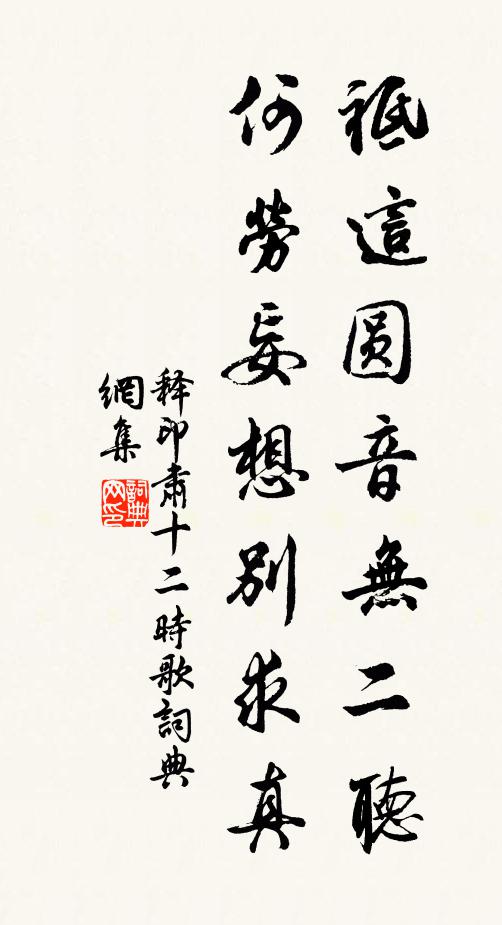 祗這圓音無二聽
何勞妄想別求真
釋印肅十二時歌詞典
網集
詞典
网印